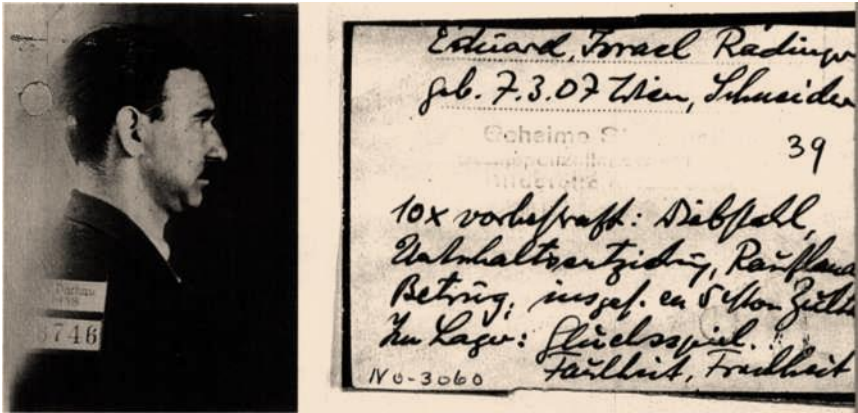 Dachau
3746
Eduard, Israel Radinger
geb. 7.3.07 Wien, Schneider
Geheime
39
10x vorbestraft: Diebstahl,
Unterhaltsentziehung, Raufhandel
Betrug, insges. ca 5 Mon
Im Lager: Glücksspiel.
Faulheit, Frechheit
NO-3060